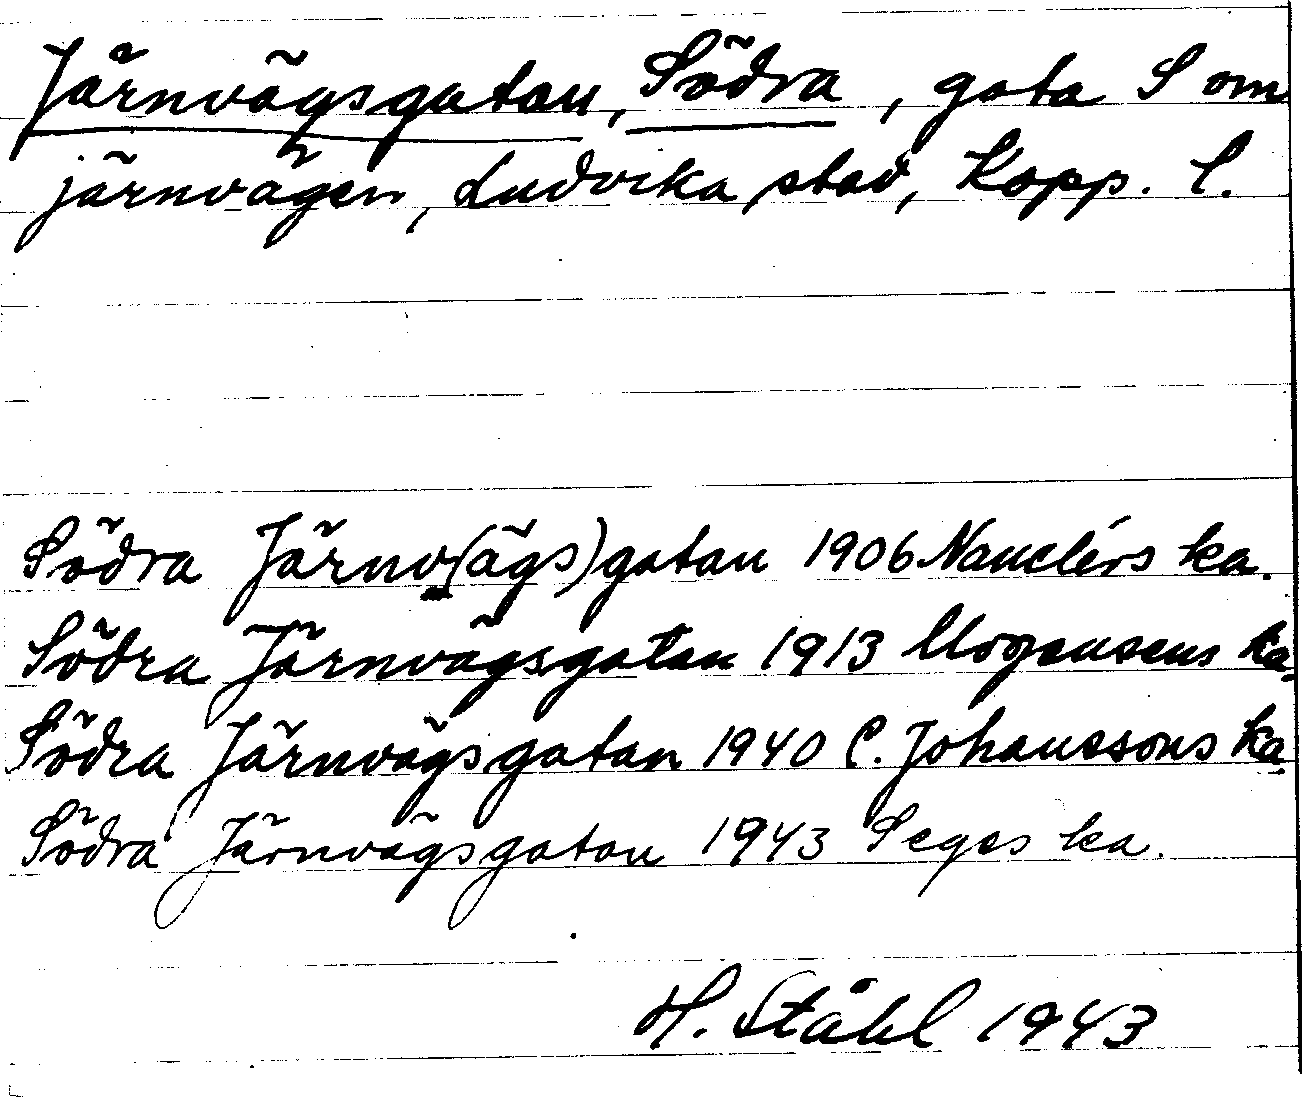 Järnvägsgatan, Södra, gata S om
järnvägen, Ludvika stad, Kopp. l.
Södra Järnv(ägs)gatan 1906 Nauclérs ka.
Södra Järnvägsgatan 1913 Mogensens ka.
Södra Järnvägsgatan 1940 C. Johanssons ka.
Södra Järnvägsgatan 1943 Seges ka.
H. Ståhl 1943